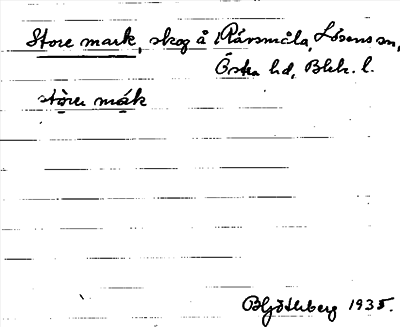 Store mark, skog å Rävsmåla, Lösens sn,
Östra hd, Blek. l.
stòre màrk
B Göthberg 1935.